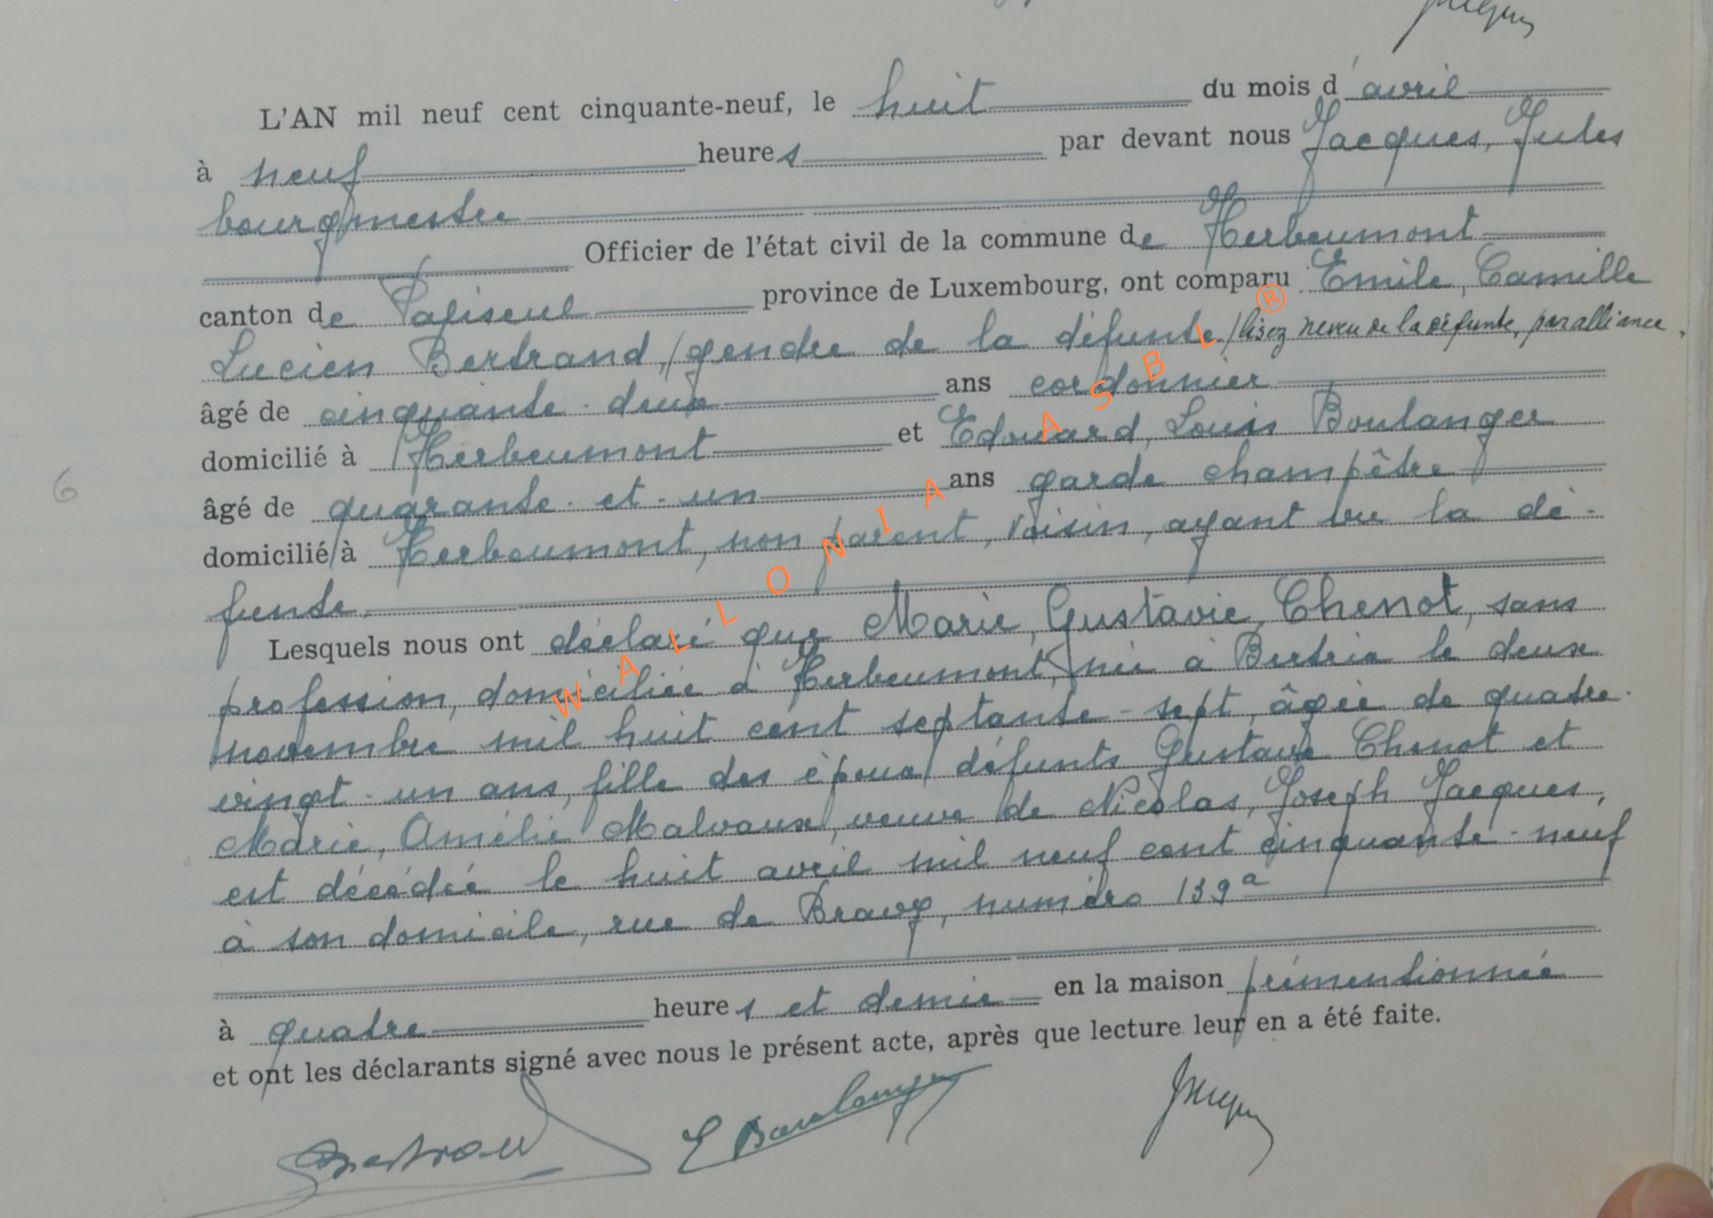 L'AN mil neuf cent cinquante-neuf, le huit du mois d'avril
à neuf heures par devant nous Jacques, Jules
bourgmestre
Officier de l'état civil de la commune de Herbeumont
canton de Paliseul province de Luxembourg, ont comparu Emile, Camille
Lucien Bertrand, /gendre de la défunte /lisez neveu de la défunte, par alliance,
âgé de cinquante-deux ans cordonnier
domicilié à Herbeumont et Edouard, Louis Boulanger
âgé de quarante-et-un ans garde champêtre
domicilié/à Herbeumont, non parent, voisin, ayant vu la dé-
funte.
Lesquels nous ont déclaré que Marie, Gustavie, Chenot, sans
profession, domiciliée à Herbeumont, née à Bertrix le deux
novembre mil huit cent septante-sept, âgée de quatre-
vingt-un ans, fille des époux défunts Gustave Chenot et
Marie, Amélie Malvaux, veuve de Nicolas, Joseph Jacques,
est décédée le huit avril mil neuf cent cinquante-neuf
à son domicile, rue de Bravy, numéro 139a
à quatre heures et demie en la maison prémentionnée
et ont les déclarants signé avec nous le présent acte, après que lecture leur en a été faite.
Bertrand E Boulanger Jacques
6
WALLONIA ASBL ®